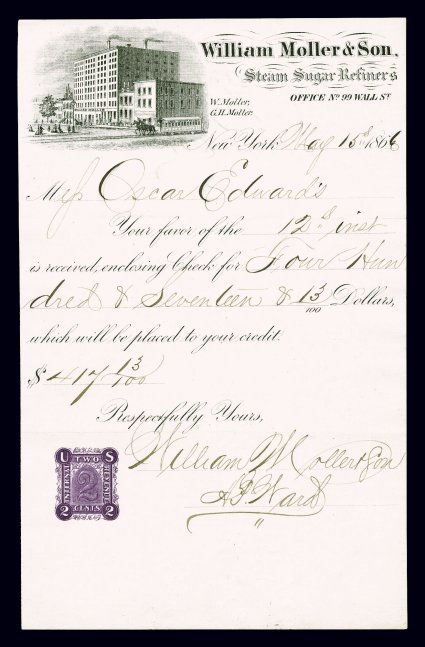 William Moller & Son,
Steam Sugar Refiners
OFFICE No. 99 WALL ST.
W. Moller,
G.H. Moller.
New York May 15th 1866
Mess Oscar Edwards
Your favor of the 12th inst
is received, enclosing Check for Four Hun
dred & Seventeen & 13/100 Dollars,
which will be placed to your credit.
$417 13/100
Respectfully Yours,
William Moller & Son
Ward
U S
TWO
INTERNAL 2 REVENUE
CENTS
2 2